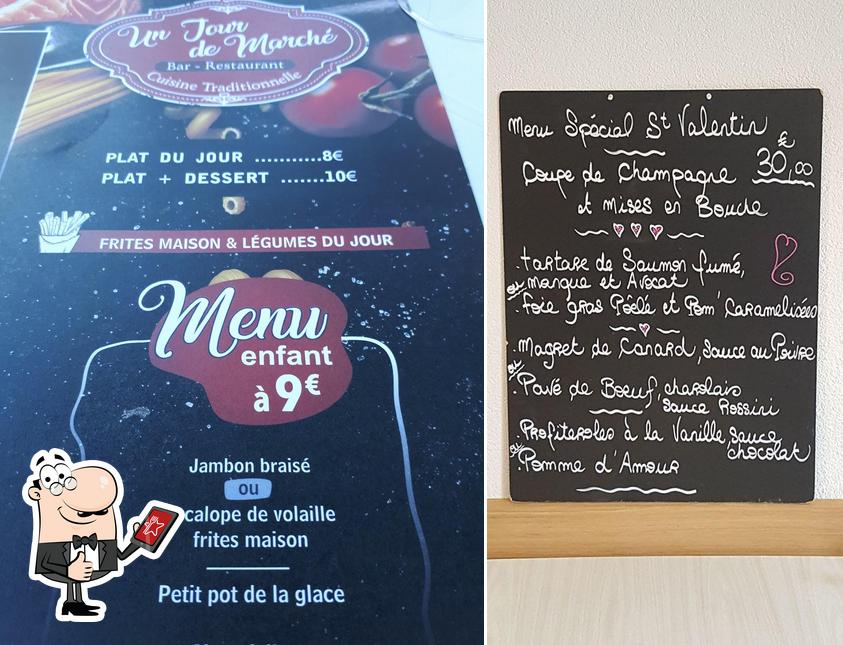 Un Jour
de Marché
Bar - Restaurant
Cuisine Traditionnelle
PLAT DU JOUR ...........8€
PLAT + DESSERT .......10€
FRITES MAISON & LÉGUMES DU JOUR
Menu
enfant
à 9€
Jambon braisé
ou
calope de volaille
frites maison
Petit pot de la glace
Menu Spécial St Valentin
€
30,00
Coupe de Champagne
et mises en Bouche
. tartare de Saumon fumé,
mangue et Avocat
ou
. foie gras Poêlé et Pom' Caramelisées
. Magret de Canard, sauce au Poivre
ou
. Pavé de Boeuf charolais
sauce Rossini
. Profiteroles à la Vanille, sauce
chocolat
ou
. Pomme d'Amour